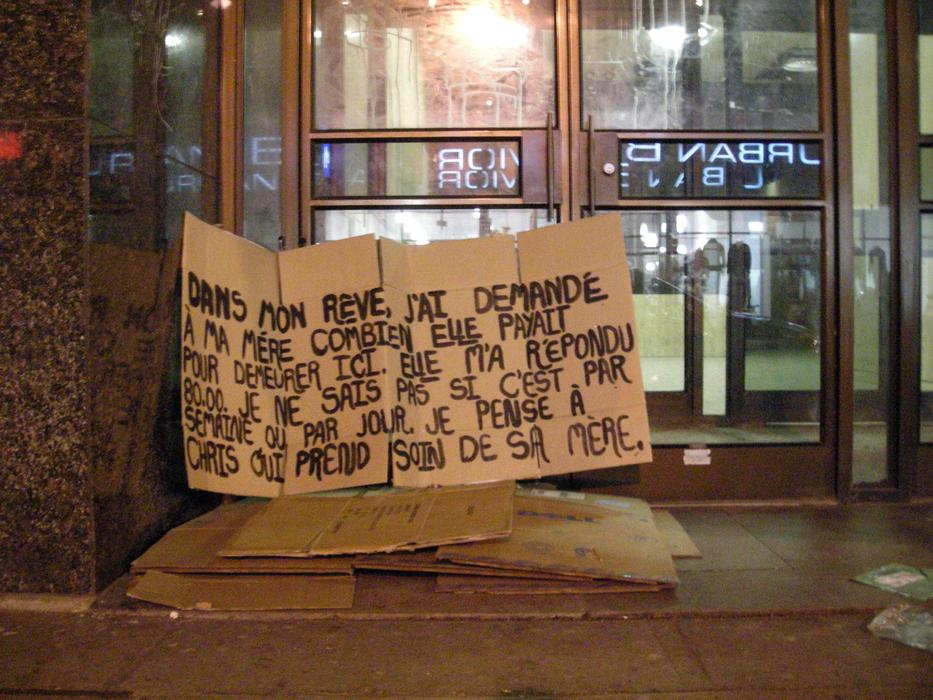 URBAN B
DANS MON RÊVE, J'AI DEMANDÉ
À MA MÉRE COMBIEN ELLE PAYAIT
POUR DEMEURER ICI. ELLE M'A RÉPONDU
80.00. JE NE SAIS PAS SI C'EST PAR
SEMAINE OU PAR JOUR. JE PENSE À
CHRIS QUI PREND SOIN DE SA MÈRE.
DELL